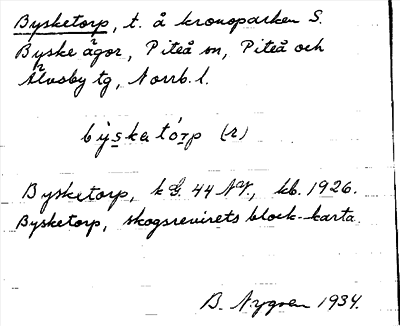 Bysketorp, t. å kronoparken S.
Byske ägor, Piteå sn, Piteå och
Älvsby tg, Norrb. l.
býske tórp (2)
Bysketorp, k G. 44 NV., kb. 1926.
Bysketorp, skogsrevirets block-karta.
B. Nygren 1934.